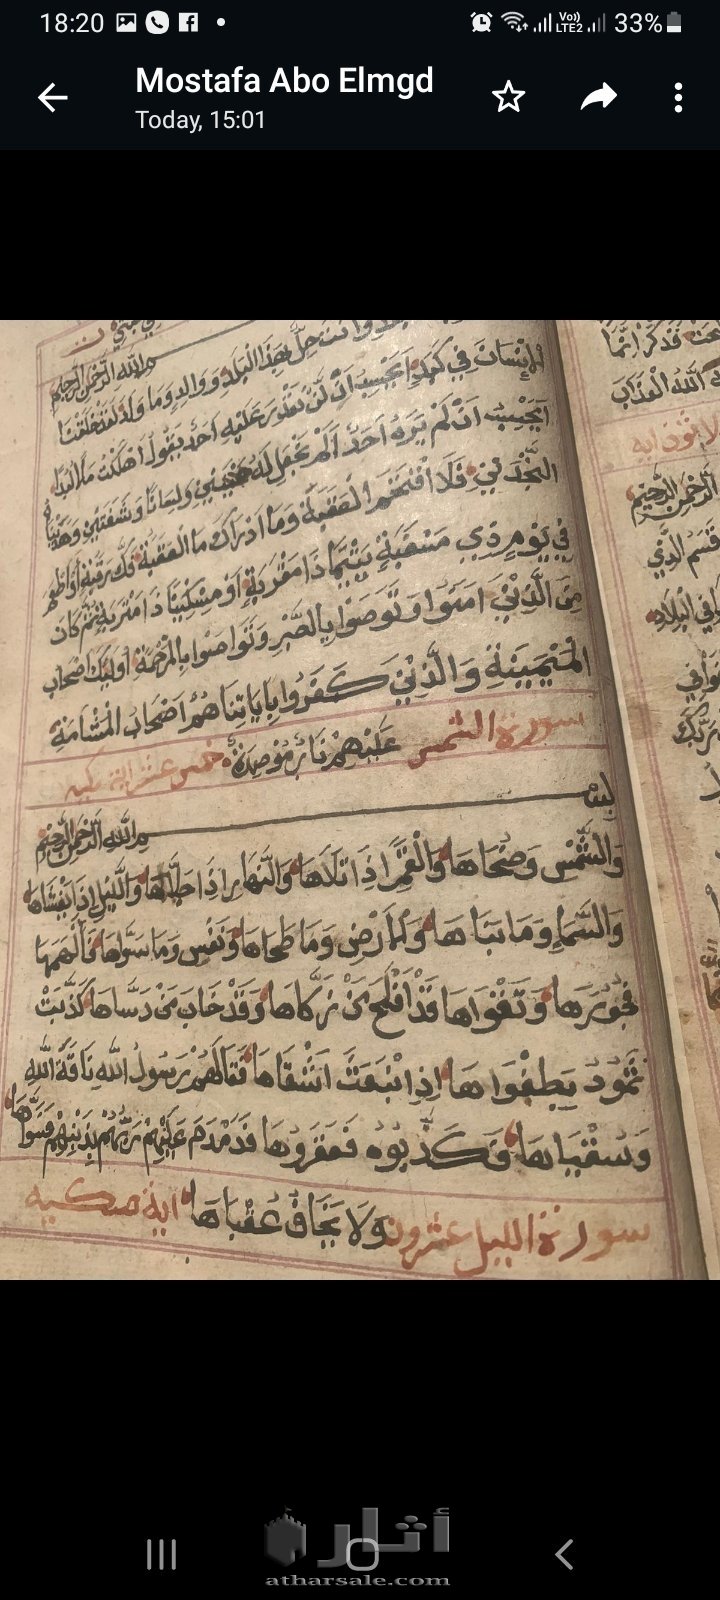 18:20
Vo)) LTE2 33%
Mostafa Abo Elmgd
Today, 15:01
بسم الله الرحمن الرحيم
وانت حل بهذا البلد ووالد وما ولد لقد خلقنا
الإنسان في كبد ايحسب ان لن يقدر عليه احد يقول اهلكت مالا لبدا
ايحسب ان لم يره احد الم نجعل له عينين ولسانا وشفتين وهديناه
النجدين فلا اقتحم العقبة وما ادراك ما العقبة فك رقبة او اطعام
في يوم ذي مسغبة يتيما ذا مقربة او مسكينا ذا متربة ثم كان
من الذين امنوا وتوصوا بالصبر وتواصوا بالمرحمة اوليك اصحاب
الميمينة والذين كفروا باياتنا هم اصحاب المشامة
سورة الشمس عليهم نار موصدة خمس عشر اية مكيه
بسم الله الرحمن الرحيم
والشمس وضحاها والقمر اذا تلاها والنهار اذا جلاها والليل اذا يغشاها
والسماء وما بناها والارض وما طحاها ونفس وما سواها فالهمها
فجورها وتقواها قد افلح من زكاها وقد خاب من دساها كذبت
ثمود بطغواها اذ انبعث اشقاها فقال لهم رسول الله ناقة الله
وسقياها فكذبوه فعقروها فدمدم عليهم ربهم بذنبهم فسواها
سورة الليل عشرون ولا يخاف عقباها اية مكيه
فذكر انما
الله العذاب
الرحمن الرحيم
قسم الذي
في البلاد
ربك
أثار
atharsale.com